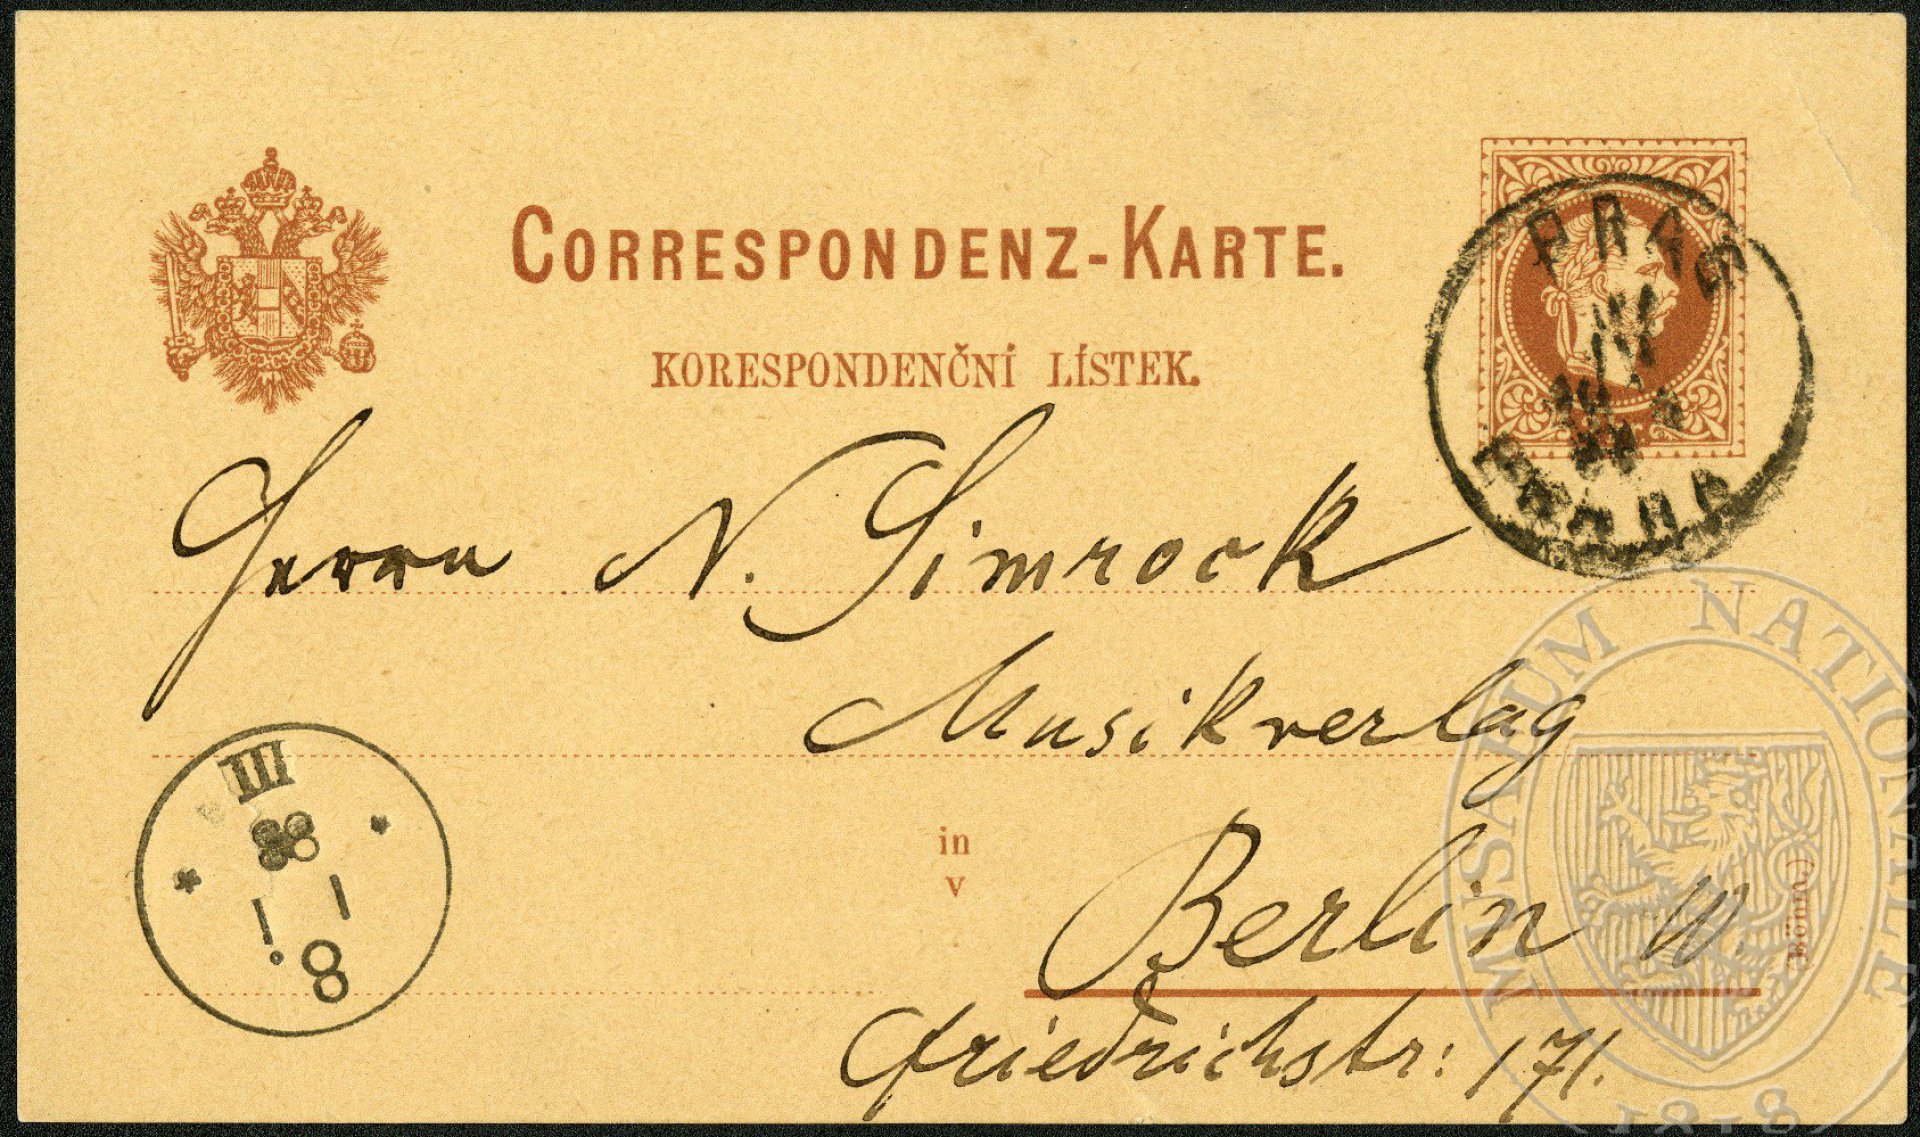 CORRESPONDENZ-KARTE.
KORESPONDENČNÍ LÍSTEK.
PRAG
PRAHA
Herrn N. Simrock
Musikverlag
in
v
Berlin W.
Friedrichstr: 171.
(Böhm.)
III
88
8
MUSAEUM NATIONALE
1818